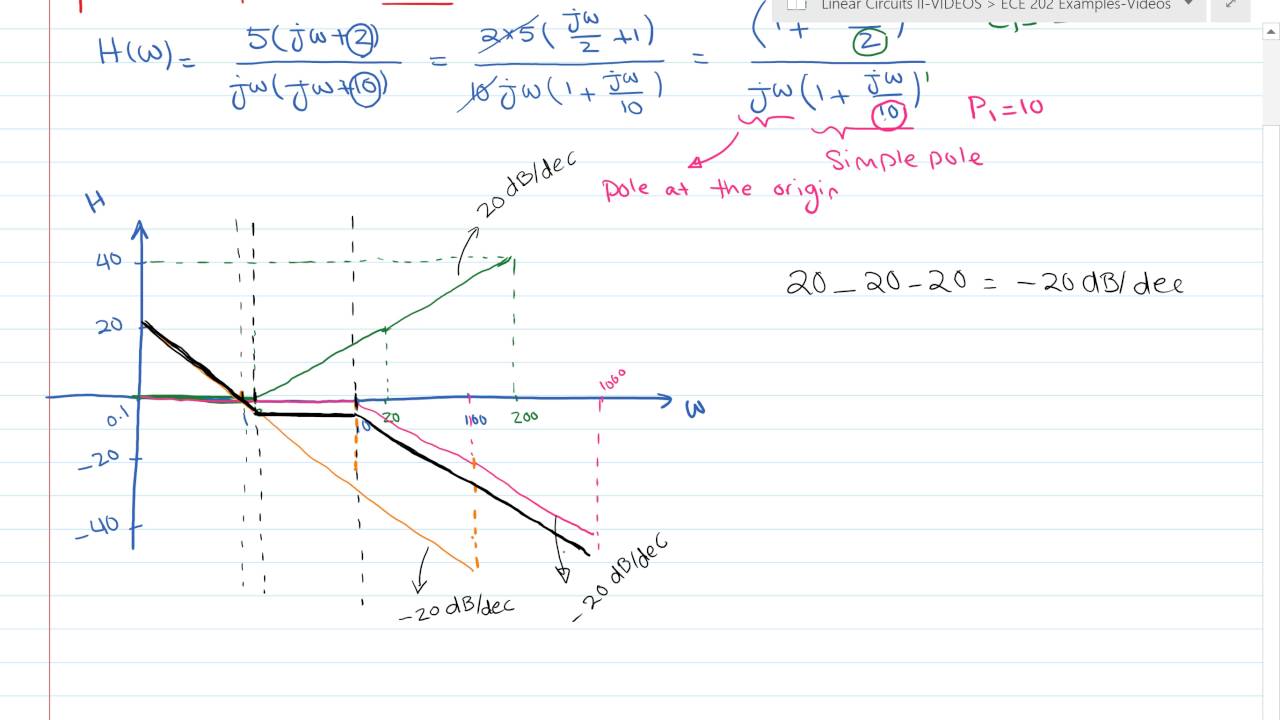 Linear Circuits II-VIDEOS > ECE 202 Examples-Videos
H(ω) = 5(jω+2) / jω(jω+10) = 2×5(jω/2 +1) / 10 jω(1+ jω/10) = (1+ 2) / jω(1+ jω/10)¹
P₁=10
Simple pole
Pole at the origin
20 dB/dec
H
40
20
20 _ 20 - 20 = - 20 dB/dec
1000
0.1 1 10 20 100 200 ω
-20
-40
-20 dB/dec
-20 dB/dec